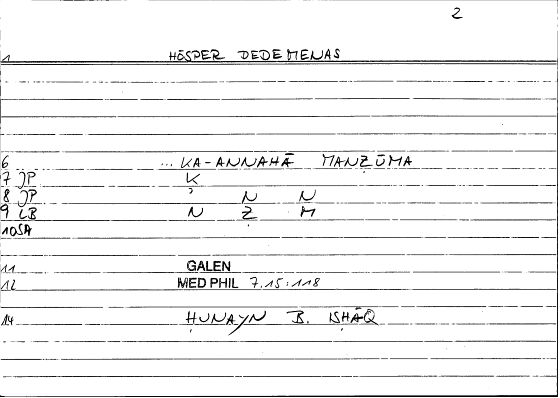 2
1 HOSPER DEDEMENAS
6 ... KA-ANNAHĀ MANẒŪMA
7 JP K
8 JP ʾ N N
9 LB N Ẓ M
10 SA
11 GALEN
12 MED PHIL 7.15:118
14 ḤUNAYN B. ISḤĀQ